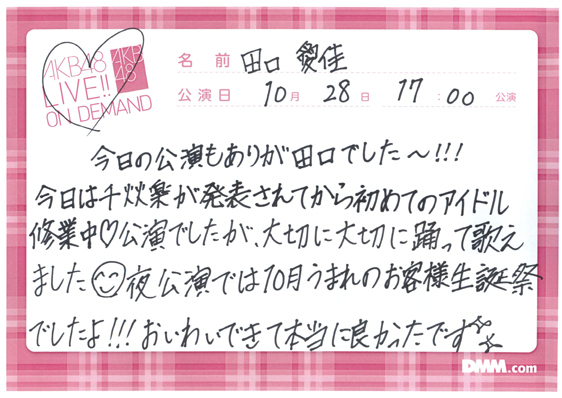 AKB48 LIVE!! ON DEMAND
AKB48
名前 田口 愛佳
公演日 10月 28日 17:00 公演
今日の公演もありが田口でした〜!!!
今日は千秋楽が発表されてから初めてのアイドル
修業中♡公演でしたが、大切に大切に踊って歌え
ました☺夜公演では10月うまれのお客様生誕祭
でしたよ!!! おいわいできて本当に良かったです☆☆
DMM.com